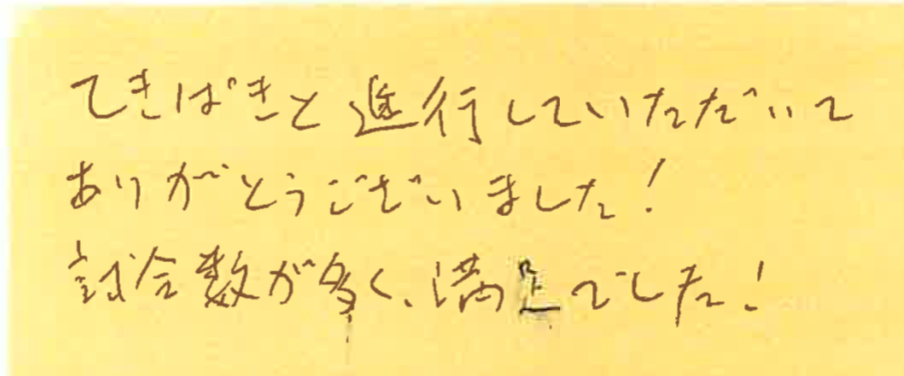 てきぱきと進行していただいて
ありがとうございました!
試合数が多く、満足でした!